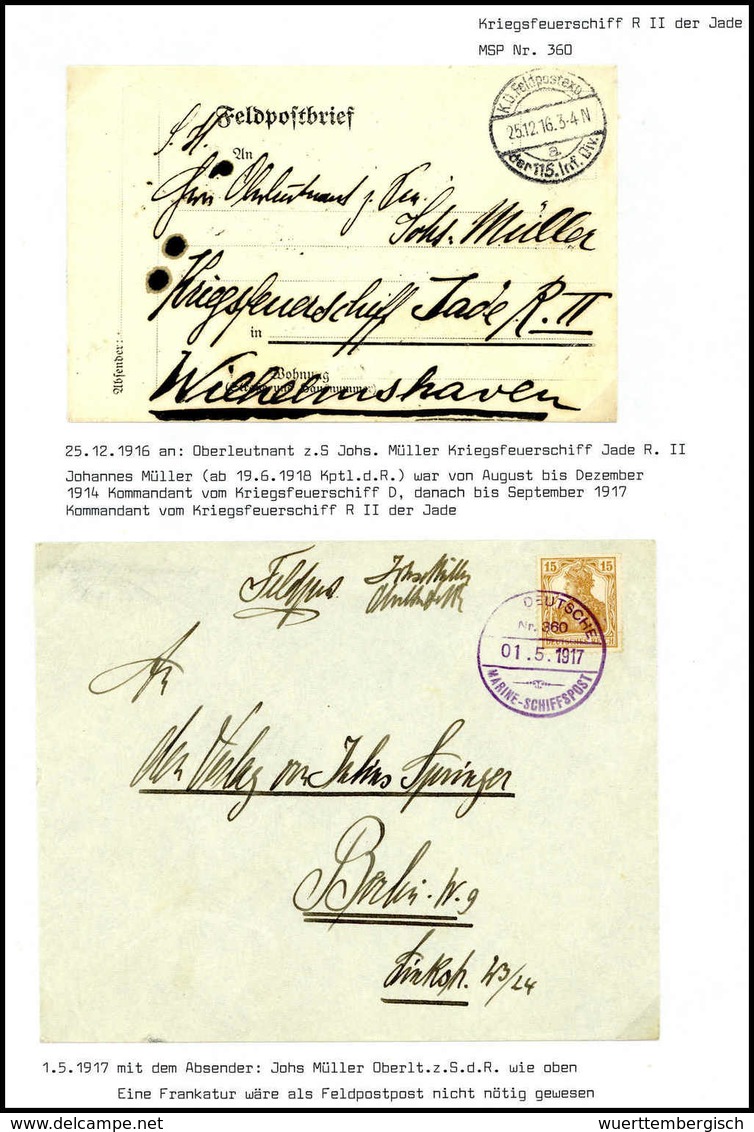 Kriegsfeuerschiff R II der Jade
MSP Nr. 360
Feldpostbrief
K.D. Feldpostexp.
25.12.16.3-4 N
a
der 115. Inf. Div.
S. H.
An
Herrn Oberleutnant z. See
Johs. Müller
Kriegsfeuerschiff Jade R. II
in
Wohnung
(Straße und Hausnummer)
Wilhelmshaven
Absender:
25.12.1916 an: Oberleutnant z.S Johs. Müller Kriegsfeuerschiff Jade R. II
Johannes Müller (ab 19.6.1918 Kptl.d.R.) war von August bis Dezember
1914 Kommandant vom Kriegsfeuerschiff D, danach bis September 1917
Kommandant vom Kriegsfeuerschiff R II der Jade
Feldpost
Johs Müller
15 15
DEUTSCHE
Nr. 360
01.5.1917
MARINE-SCHIFFSPOST
An
den Verlag von Julius Springer
Berlin. W. 9
Linkstr. 23/24
1.5.1917 mit dem Absender: Johs Müller Oberlt.z.S.d.R. wie oben
Eine Frankatur wäre als Feldpostpost nicht nötig gewesen
wuerttembergisch